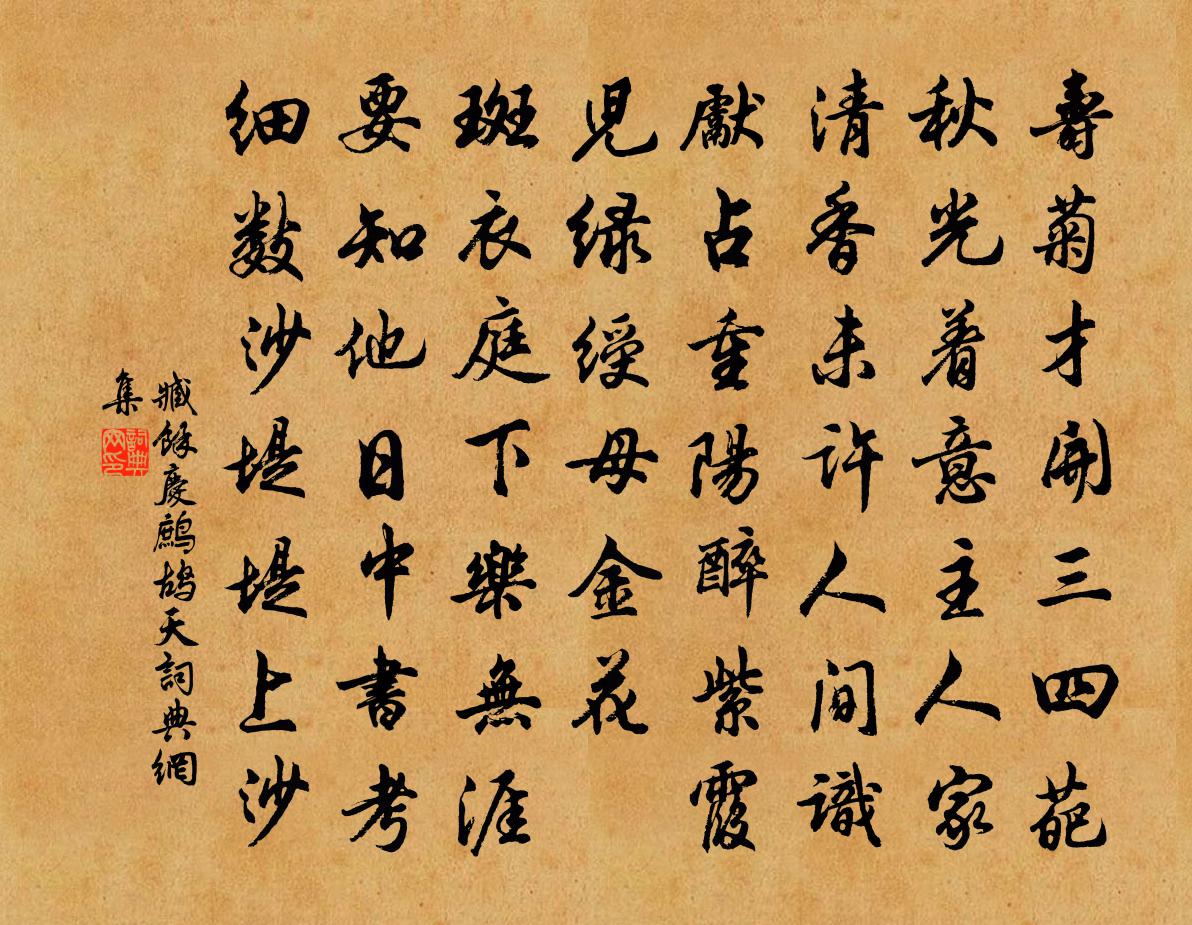 壽菊才開三四葩
秋光着意主人家
清香未許人間識
獻占重陽醉紫霞
児緑綬母金花
斑衣庭下樂無涯
要知他日中書考
細数沙堤堤上沙
臧餘慶鷓鴣天詞典網
集
詞典
网印